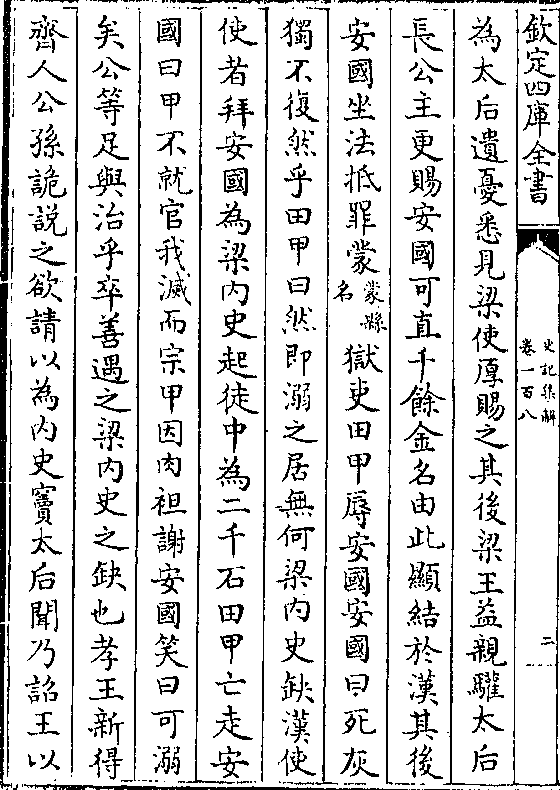 欽定四庫全書
史記集解
卷一百八
二
為太后遺憂悉見梁使厚賜之其後梁王益親驩太后
長公主更賜安國可直千餘金名由此顯結於漢其後
安國坐法抵罪蒙蒙縣名獄吏田甲辱安國安國曰死灰
獨不復然乎田甲曰然即溺之居無何梁内史缺漢使
使者拜安國為梁内史起徒中為二千石田甲亡走安
國曰甲不就官我滅而宗甲因肉袒謝安國笑曰可溺
矣公等足與治乎卒善遇之梁内史之缺也孝王新得
齊人公孫詭説之欲請以為内史竇太后聞乃詔王以